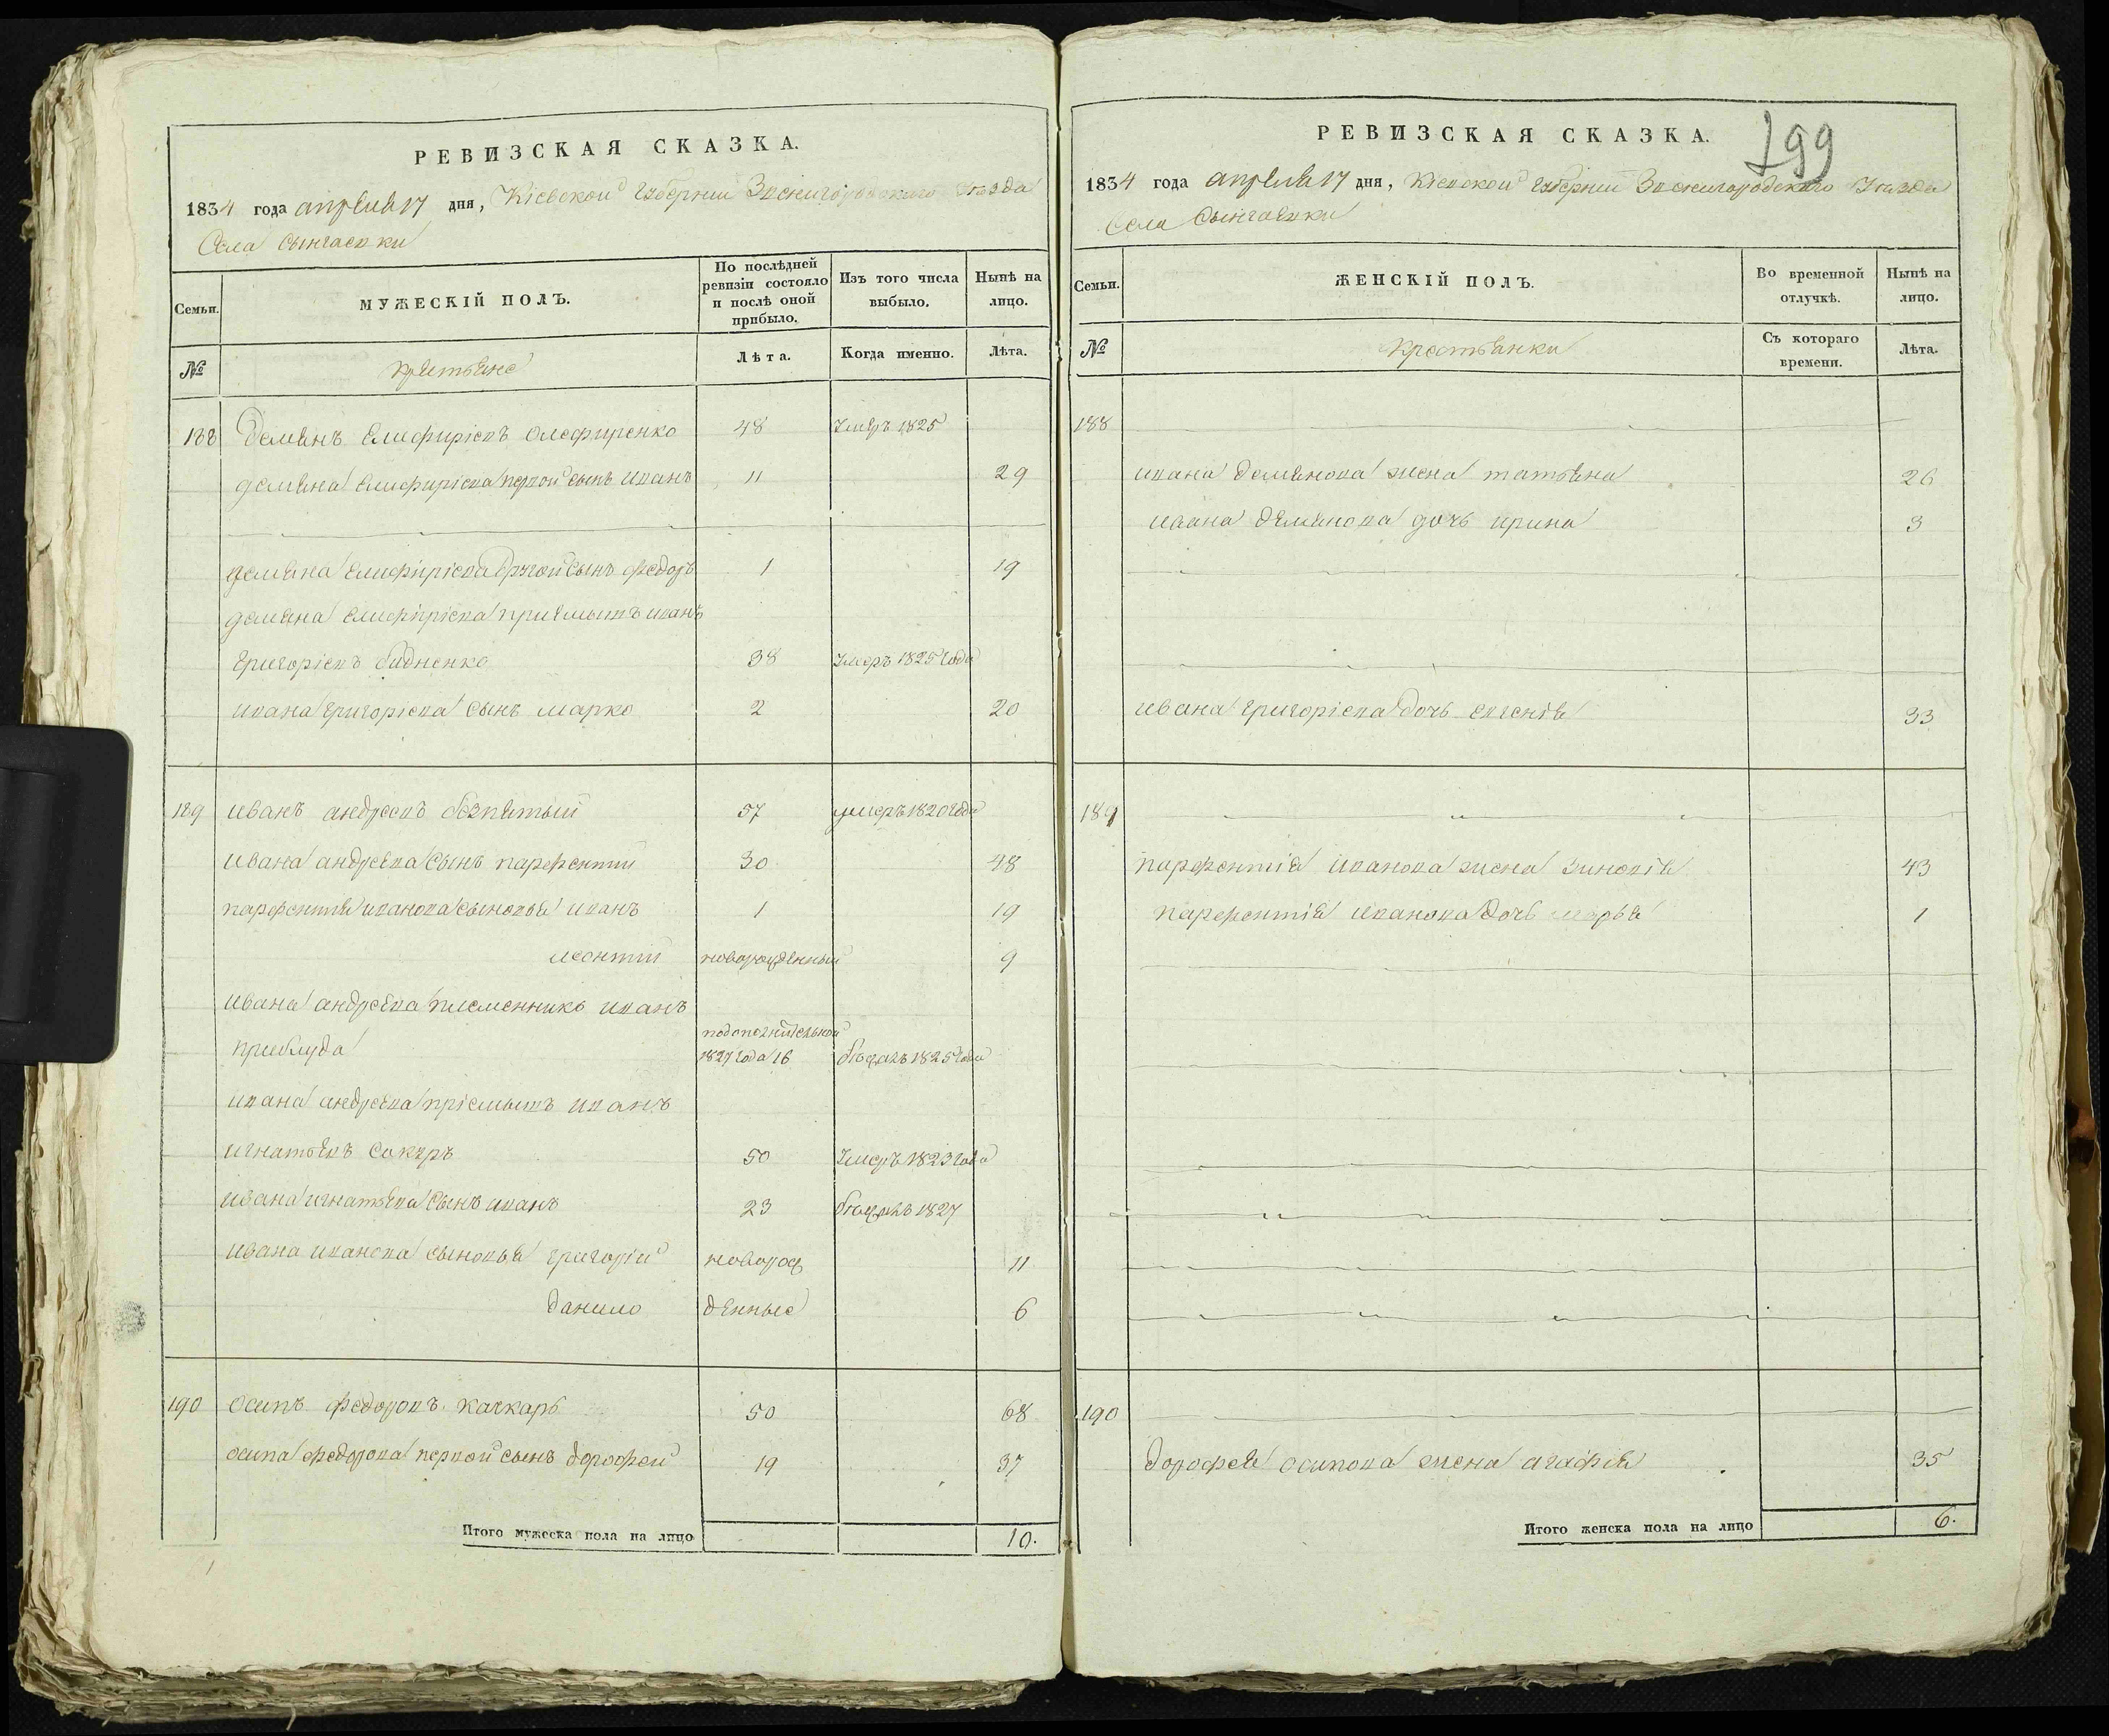 РЕВИЗСКАЯ СКАЗКА.
1834 года апреля 17 дня, Кіевской Губерніи Звенигородского Уезда
Села Сынгаевки
Семьи.
МУЖЕСКІЙ ПОЛЪ.
По послѣдней ревизіи состояло и послѣ оной прибыло.
Изъ того числа выбыло.
Нынѣ на лицо.
№
крестьяне
Лѣта.
Когда именно.
Лѣта.
188 Демянъ Елисфиріевъ Олефиренко 48 Умеръ 1825
демяна Елисфиріева первой сынъ иванъ 11 29
демяна елисфиріева другой сынъ федоръ 1 19
демяна елисфиріева приемышъ иванъ
григоріевъ 38 Умеръ 1825 года
ивана григоріева сынъ марко 2 20
189 иванъ андреевъ безпятый 57 умеръ 1820 года
ивана андреева сынъ парфентий 30 48
парфентия иванова сыновья иванъ 1 19
леонтий новорожденный 9
ивана андреева племенникъ иванъ
приблуда подополнительной 1827 года 16 бежалъ 1825 года
ивана андреева пріемышъ иванъ
игнатьевъ Сакунъ 50 Умеръ 1823 года
ивана игнатьева сынъ иванъ 23 бежалъ 1827
ивана иванова сыновья григорій новорож 11
данило денные 6
190 осипъ федоровъ качкарь 50 68
осипа федорова первой сынъ дорофей 19 37
Итого мужеска пола на лицо 10.
РЕВИЗСКАЯ СКАЗКА.
199
1834 года апреля 17 дня, Кіевской Губерніи Звенигородского Уезда
Села Сынгаевки
Семьи.
ЖЕНСКІЙ ПОЛЪ.
Во временной отлучкѣ.
Нынѣ на лицо.
№
крестьянки
Съ котораго времени.
Лѣта.
188
ивана демянова жена татьяна 26
ивана демянова дочь ирина 3
ивана григоріева дочь евгенія 33
189
парфентія иванова жена зиновія 43
парфентія иванова дочь марья 1
190
дорофея осипова жена агафія 35
Итого женска пола на лицо 6.